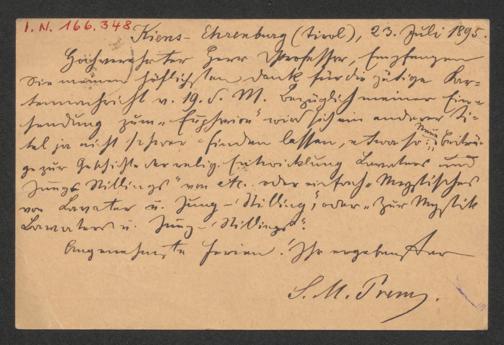 I. N. 166.348
Kiens-Ehrenburg (Tirol), 23. Juli 1895.
Hochverehrter Herr Professor, Empfangen
Sie meinen höflichsten Dank für die gütige Kar-
tennachricht v. 19. d. M. Bezüglich meiner Ein-
sendung zum „Euphorion" wird sich ein anderer Ti-
tel ja nicht schwer finden lassen, etwa so: „Neue Beiträ-
ge zur Geschichte der relig. Entwicklung Lavaters und
Jung-Stillings" von etc. oder einfach „Mystisches
von Lavater u. Jung-Stilling", oder „Zur Mystik
Lavaters u. Jung-Stillings".
Angenehmste Ferien! Ihr ergebenster
S. M. Prem.